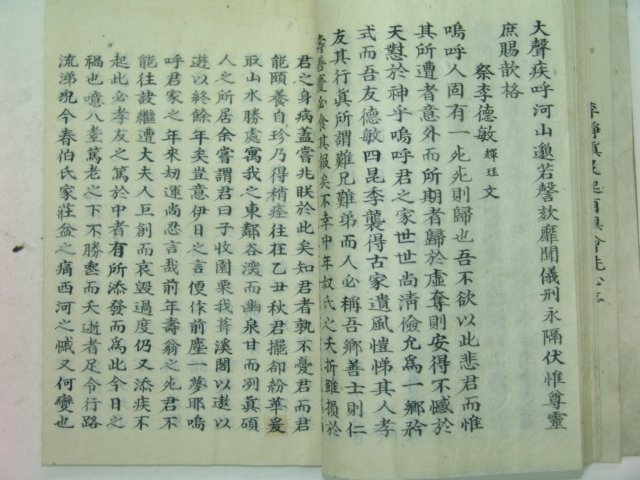 大聲疾呼河山邈若謦欬靡聞儀刑永隔伏惟尊靈
庶賜歆格
祭李德敏輝珏文
嗚呼人固有一死死則歸也吾不欲以此悲君而惟
其所遭者意外而所期者歸於虛奪則安得不憾於
天懟於神乎嗚呼君之家世世尚淸儉允爲一鄕矜
式而吾友德敏四昆季襲得古家遺風愷悌其人孝
友其行眞所謂難兄難弟而人必稱吾鄕善士則仁
善慶必食其報矣不幸中年叔氏之夭折雖損於
君之身病盖嘗兆眹於此矣知君者孰不憂君而君
能頤養自珍乃得稍痊往在乙丑秋君擺却紛華爰
取山水勝處寓我之東鄰谷濙而幽泉甘而冽眞碩
人之所居余嘗謂君曰子收園栗我葺溪閣以遨以
遊以終餘年矣豈意伊日之言便作前塵一夢耶嗚
呼君家之年來刼運尚忍言哉前年壽翁之死君不
能往訣繼遭大夫人巨創而哀毁過度仍又添疾不
起此必孝友之篤於中者有所添發而爲此今日之
禍也噫八耋篤老之下不勝慼而夭逝者足令行路
流涕况今春伯氏家莊盆之痛西河之慽又何變也